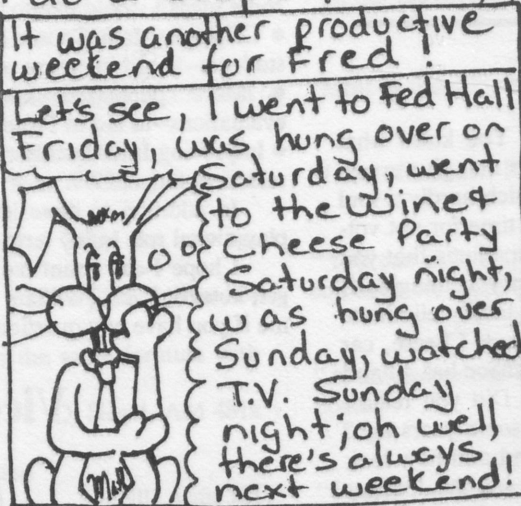 It was another productive
weekend for Fred!
Let's see, I went to Fed Hall
Friday, was hung over on
Saturday, went
to the Wine &
Cheese Party
Saturday night,
was hung over
Sunday, watched
T.V. Sunday
night, oh well,
there's always
next weekend!